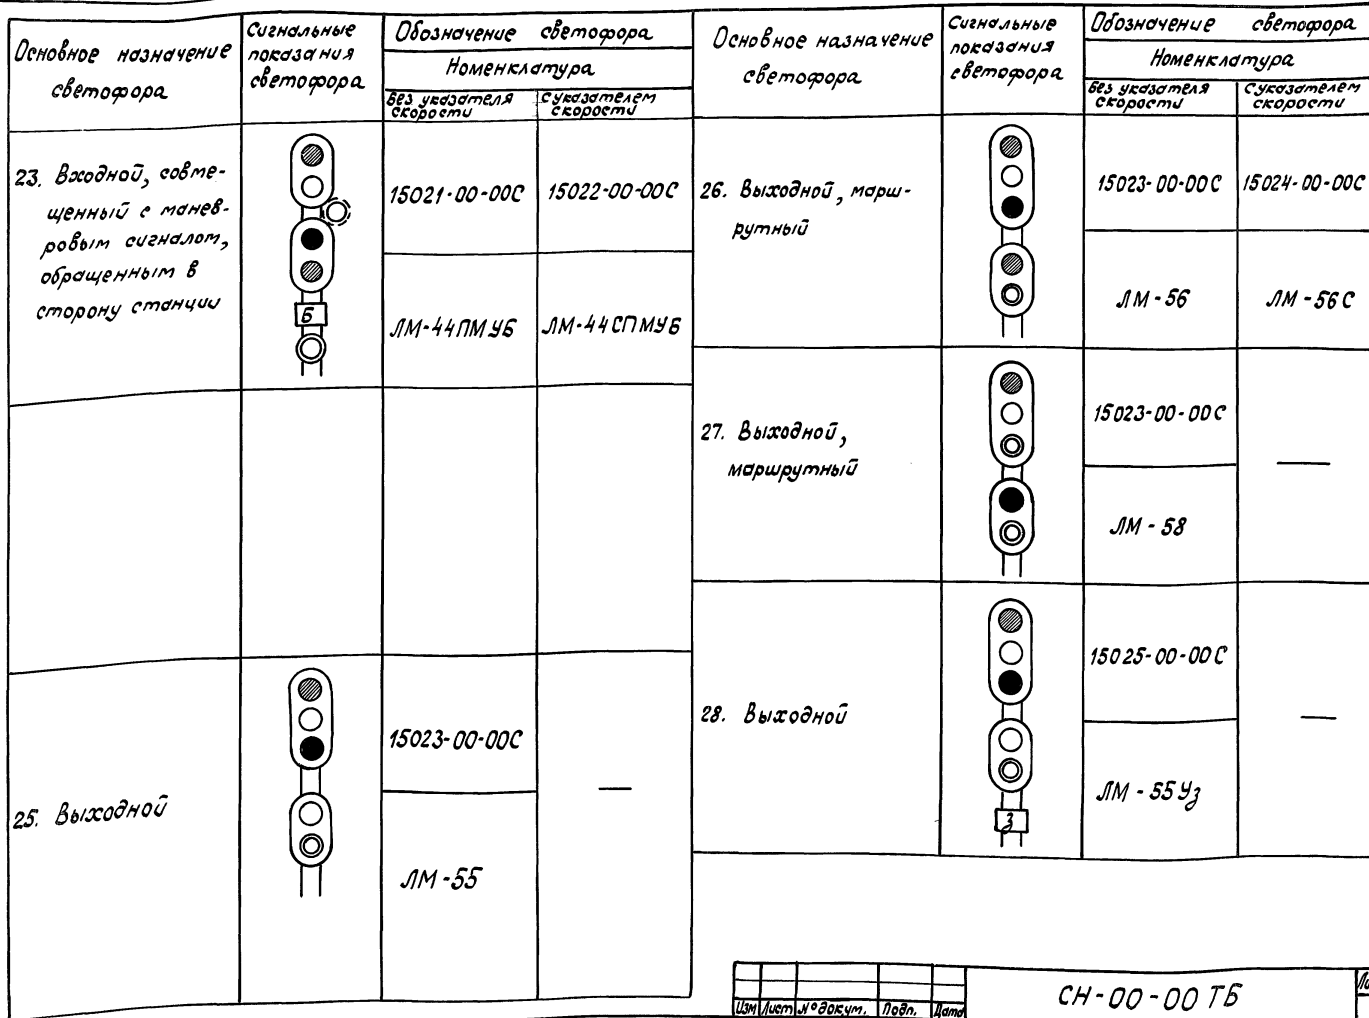 Основное назначение
светофора
Сигнальные
показания
светофора
Обозначение светофора
Номенклатура
без указателя
скорости
с указателем
скорости
23. Входной, совме-
щенный с манев-
ровым сигналом,
обращенным в
сторону станции
Б
15021-00-00С
15022-00-00С
ЛМ-44ПМУБ
ЛМ-44СПМУБ
25. Выходной
15023-00-00С
—
ЛМ-55
Основное назначение
светофора
Сигнальные
показания
светофора
Обозначение светофора
Номенклатура
без указателя
скорости
с указателем
скорости
26. Выходной, марш-
рутный
15023-00-00С
15024-00-00С
ЛМ-56
ЛМ-56С
27. Выходной,
маршрутный
15023-00-00С
—
ЛМ-58
28. Выходной
З
15025-00-00С
—
ЛМ-55Уз
Изм Лист № докум. Подп. Дата
СН-00-00 ТБ